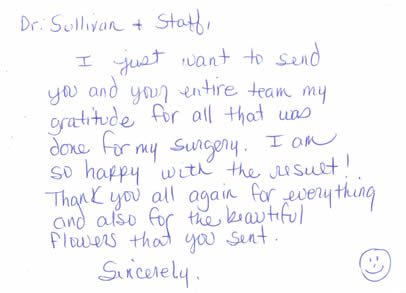 Dr. Sullivan + Staff,
I just want to send
you and your entire team my
gratitude for all that was
done for my surgery. I am
so happy with the result!
Thank you all again for everything
and also for the beautiful
flowers that you sent.
Sincerely.